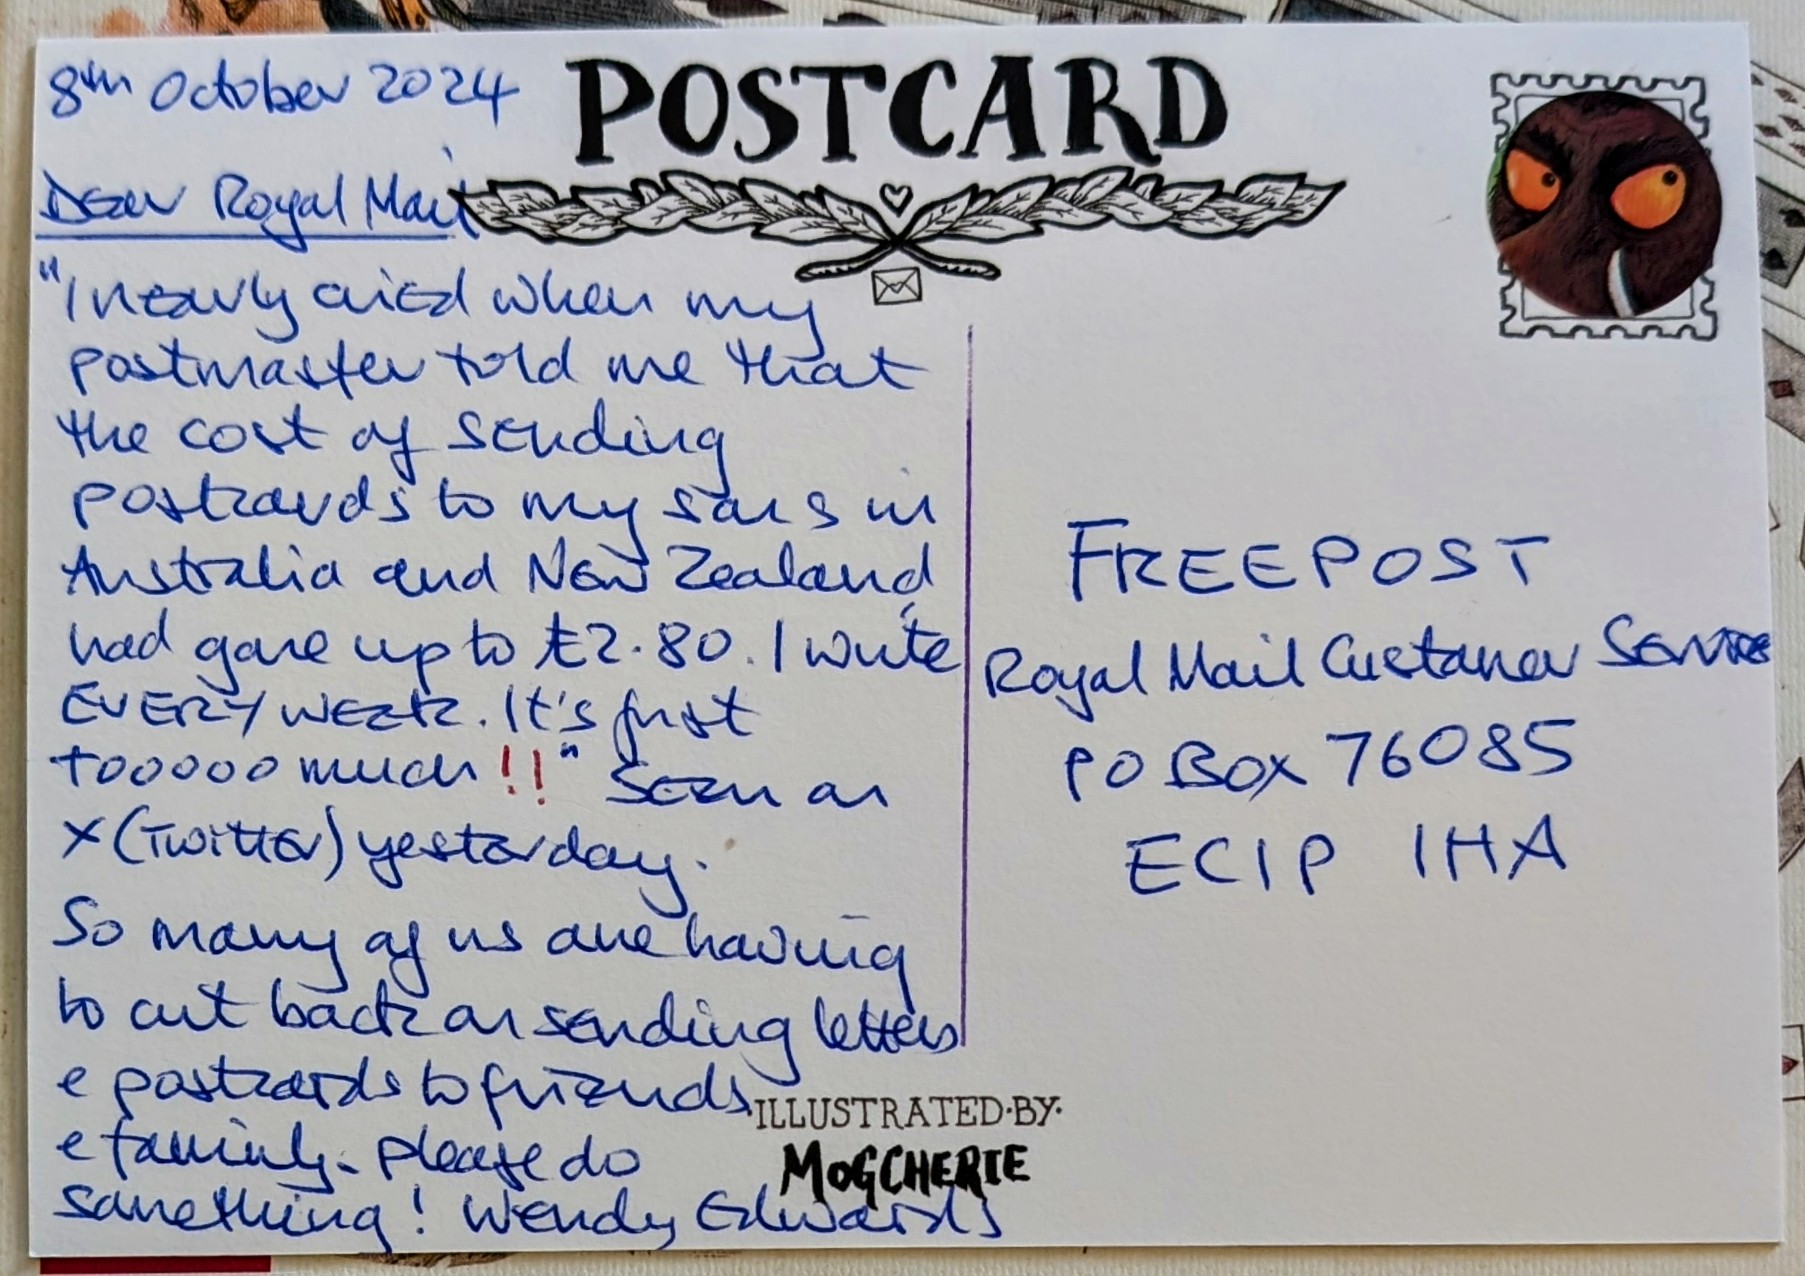 8th October 2024
POSTCARD
Dear Royal Mail
"I nearly cried when my
postmaster told me that
the cost of sending
postcards to my sons in
Australia and New Zealand,
had gone up to £2.80. I write
EVERY WEEK. It's just
tooooo much!!" Seen on
X (Twitter) yesterday.
So many of us are having
to cut back on sending letters
& postcards to friends
& family. Please do
something! Wendy Edwards
FREEPOST
Royal Mail Customer Services
PO Box 76085
EC1P 1HA
ILLUSTRATED·BY·
MOGCHERIE